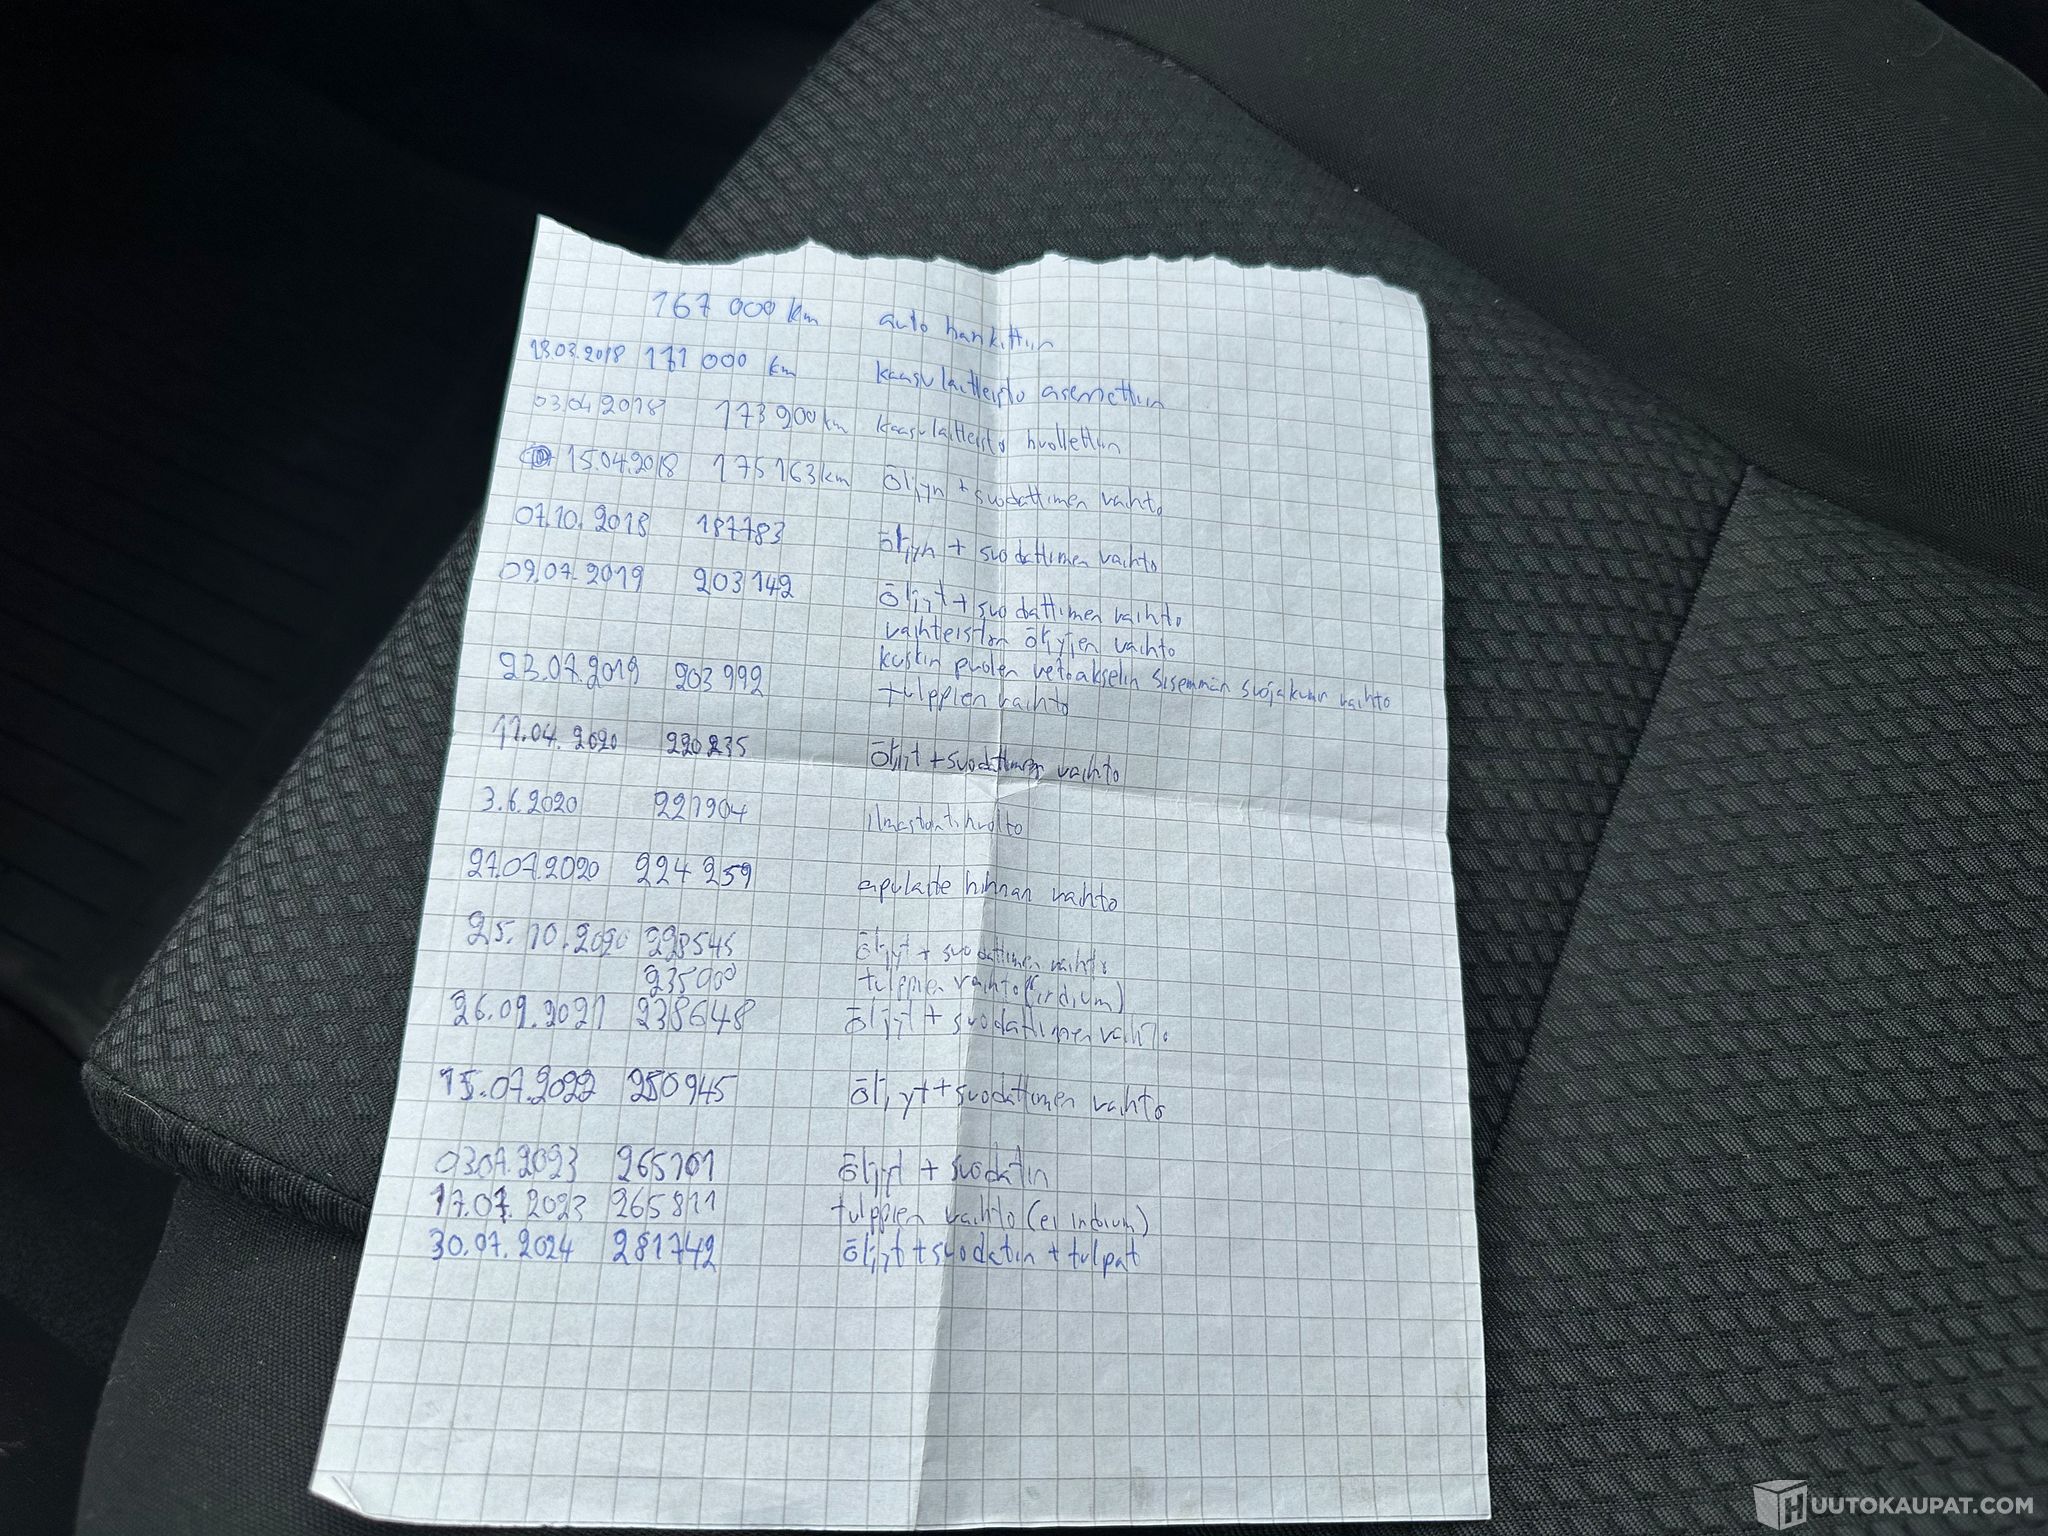 167 000 km auto hankittiin
13.03.2018 171 000 km kaasulaitteisto asennettiin
03.04.2018 173 900 km kaasulaitteisto huollettiin
15.04.2018 175 163 km öljyn + suodattimen vaihto
07.10.2018 187783 öljyn + suodattimen vaihto
09.07.2019 203142 öljyt + suodattimen vaihto
vaihteiston öljyjen vaihto
23.07.2019 203 992 kuskin puolen vetoakselin sisemmän suojakumin vaihto
tulppien vaihto
17.04.2020 220235 öljyt + suodattimen vaihto
3.6.2020 221904 ilmastointihuolto
27.07.2020 224 259 apulaite hihnan vaihto
25.10.2020 228545 öljyt + suodattimen vaihto
235000 tulppien vaihto (iridium)
26.09.2021 238648 öljyt + suodattimen vaihto
15.07.2022 250945 öljyt + suodattimen vaihto
03.07.2023 265101 öljyt + suodatin
17.07.2023 265811 tulppien vaihto (ei iridium)
30.07.2024 281742 öljyt + suodatin + tulpat
HUUTOKAUPAT.COM